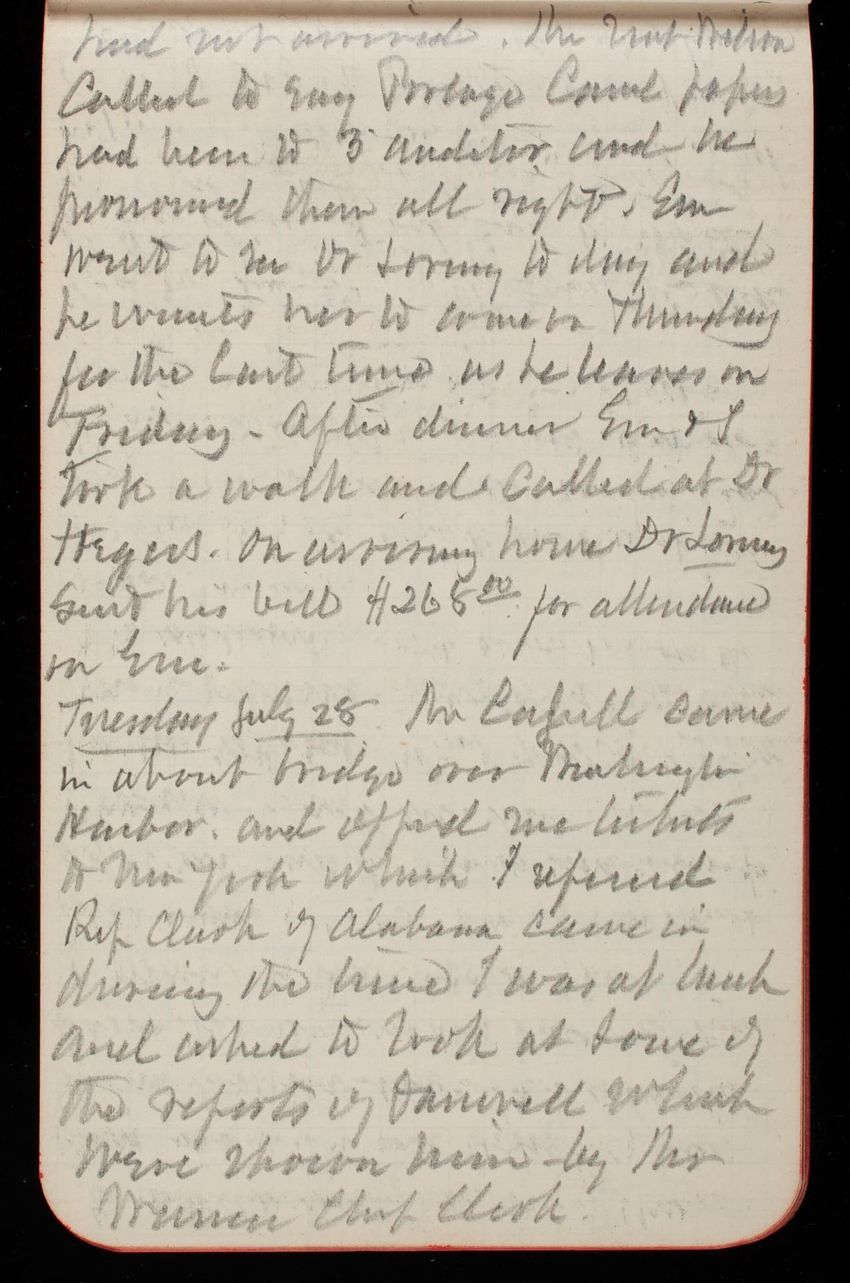 had not arrived. Mr Nat Wilson
Called to say Portage Canal papers
had been to 3 auditor and he
pronounced them all right. Em
went to see Dr Loring to day and
he wants her to come on Thursday
for the last time as he leaves on
Friday - After dinner Em & I
took a walk and called at Dr
Hegers. On arriving home Dr Loring
sent his bill $268 00 for attendance
on Em.
Tuesday July 28 Mr came
in about bridge over Washington
Harbor. and offered me tickets
to New York which I refused
Rep Clark of Alabama came in
during the time I was at lunch
and asked to look at some of
the reports of Damrell which
were shown him by Mr
Warren Chf Clerk.